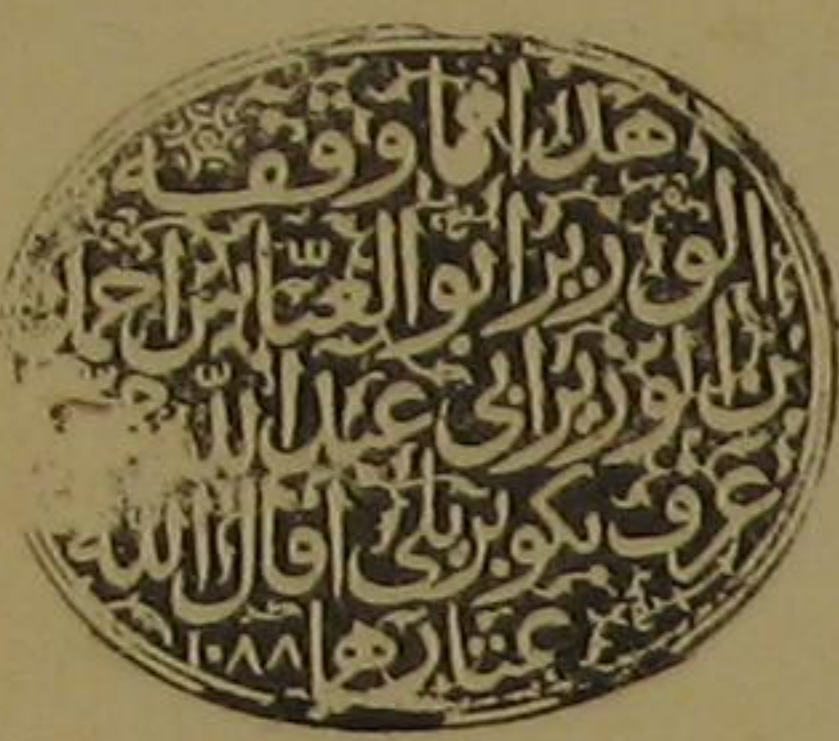 هذا مما وقفه
الوزير ابو العباس احمد
بن الوزير ابي عبد الله
عرف بكوبريلي اقال الله
عثارهما ١٠٨٨